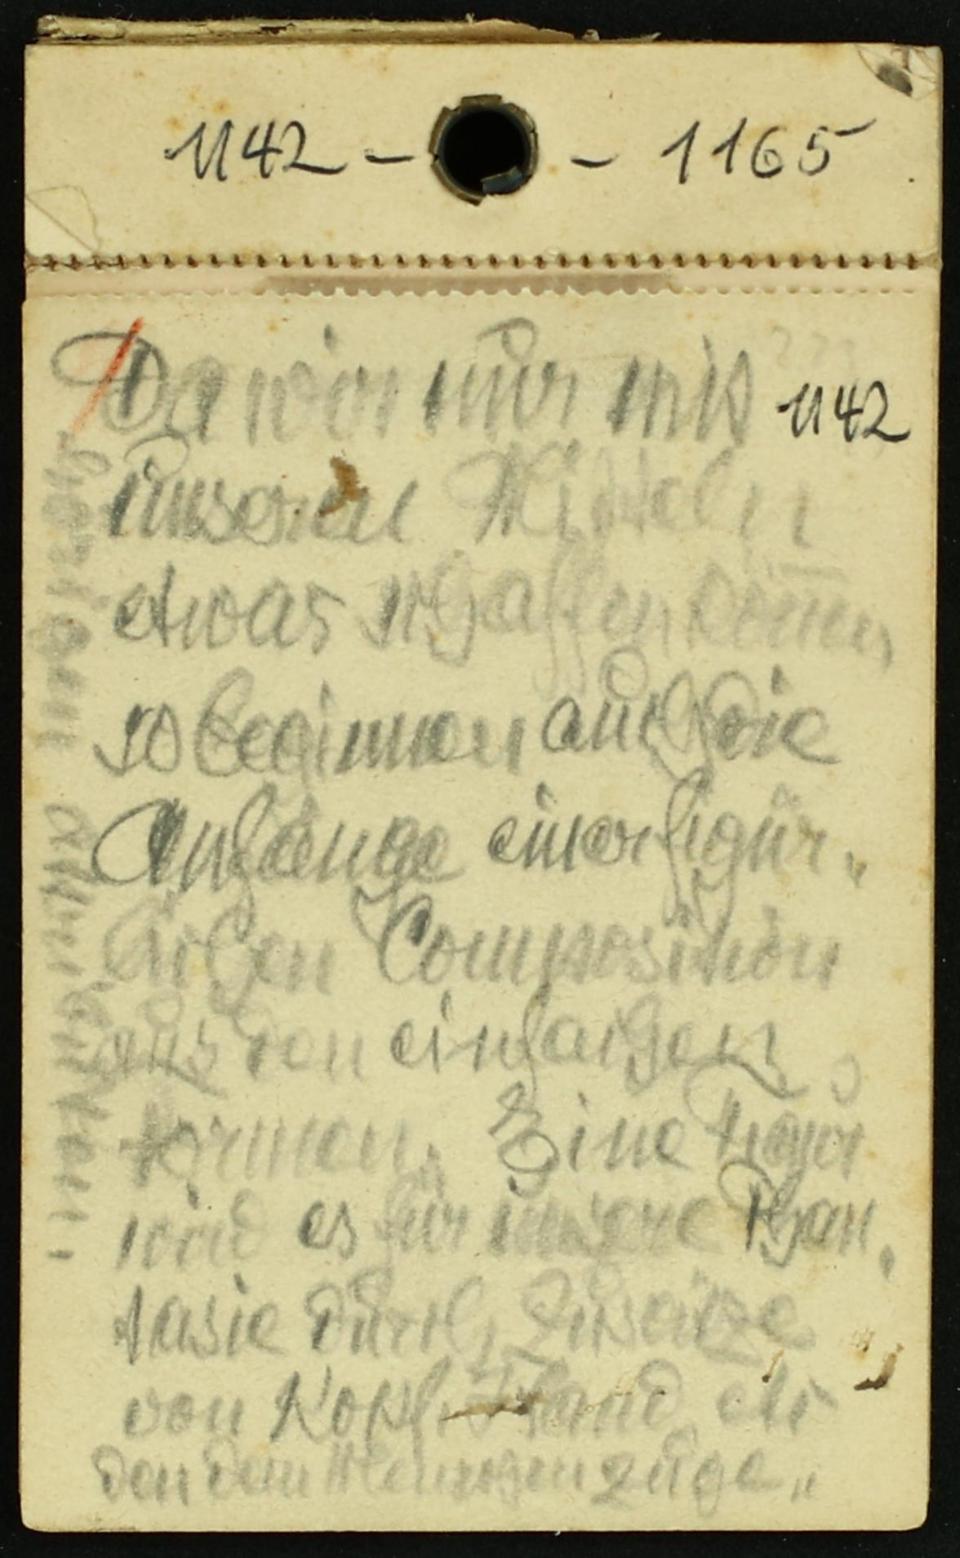 1142 - - 1165
1142
Da wir nur mit
unseren Mitteln
etwas schaffen können,
so beginnen auch die
Anfänge einer figür-
lichen Composition
aus den einfachen
Formen. Eine Figur
wird es für unsere Phan-
tasie durch Zusätze
von Kopf, Hand, etc
den dem Menschen zuge-